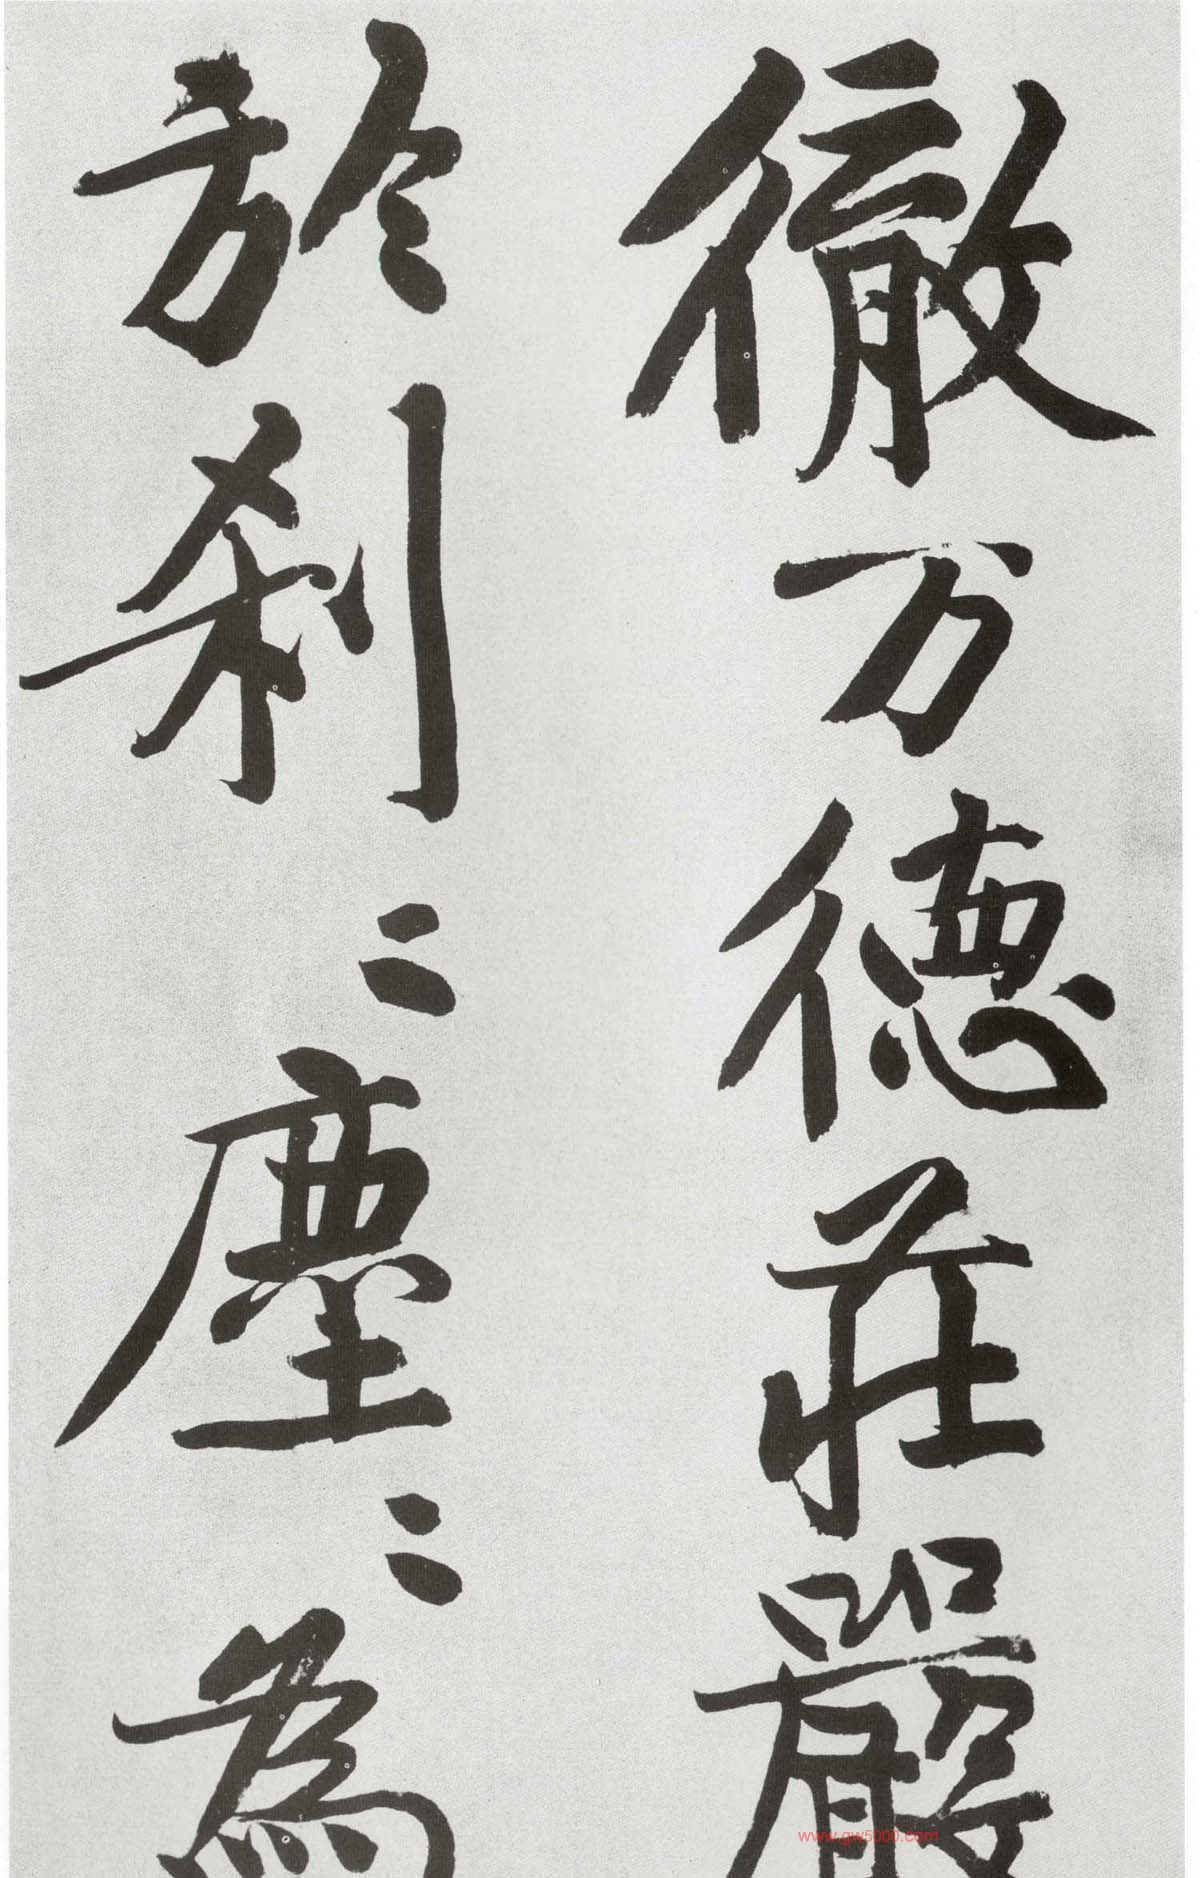 徹万德莊嚴
於刹〻塵〻為
www.gw5000.com